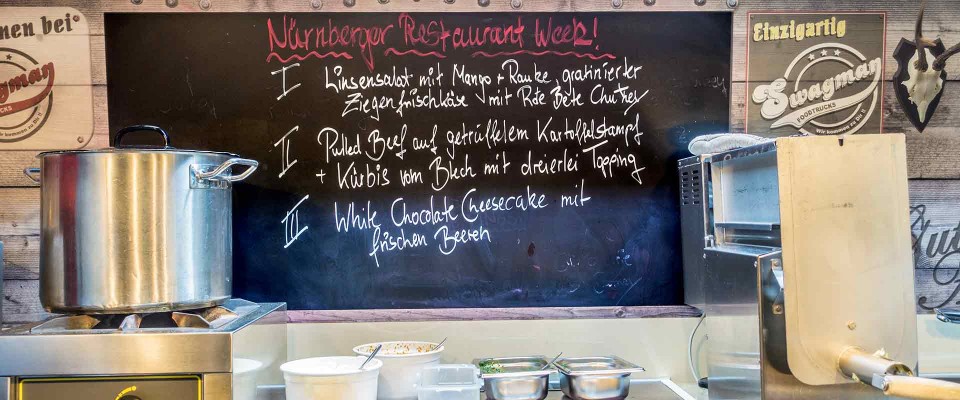 nen bei
Swagman
Nürnberger Restaurant Week!
I Linsensalat mit Mango + Rauke, gratinierter
Ziegenfrischkäse mit Rote Bete Chutney
II Pulled Beef auf getrüffeltem Kartoffelstampf
+ Kürbis vom Blech mit dreierlei Topping
III White Chocolate Cheesecake mit
frischen Beeren
Einzigartig
Swagman
FOODTRUCKS
Wir kommen zu Dir!